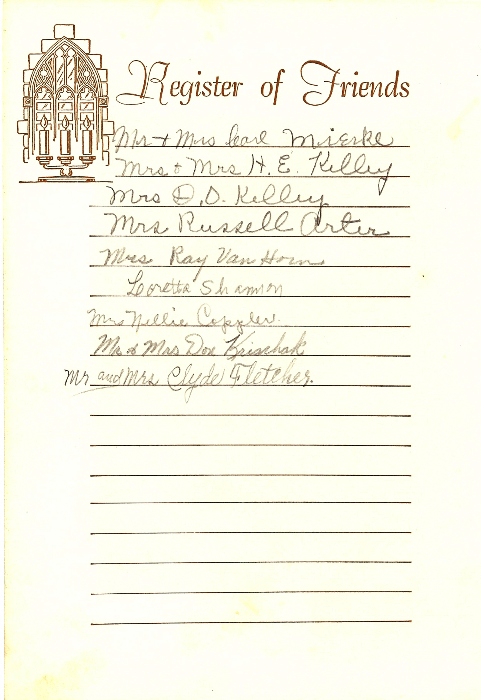 Register of Friends
Mr + Mrs Carl Mierke
Mrs + Mrs H. E. Kelley
Mrs D. D. Kelley
Mrs Russell Arter
Mrs Ray Van Horn
Loretta Shannon
Mrs Nellie Coppler
Mr & Mrs Don Krischak
Mr and Mrs Clyde Fletcher.